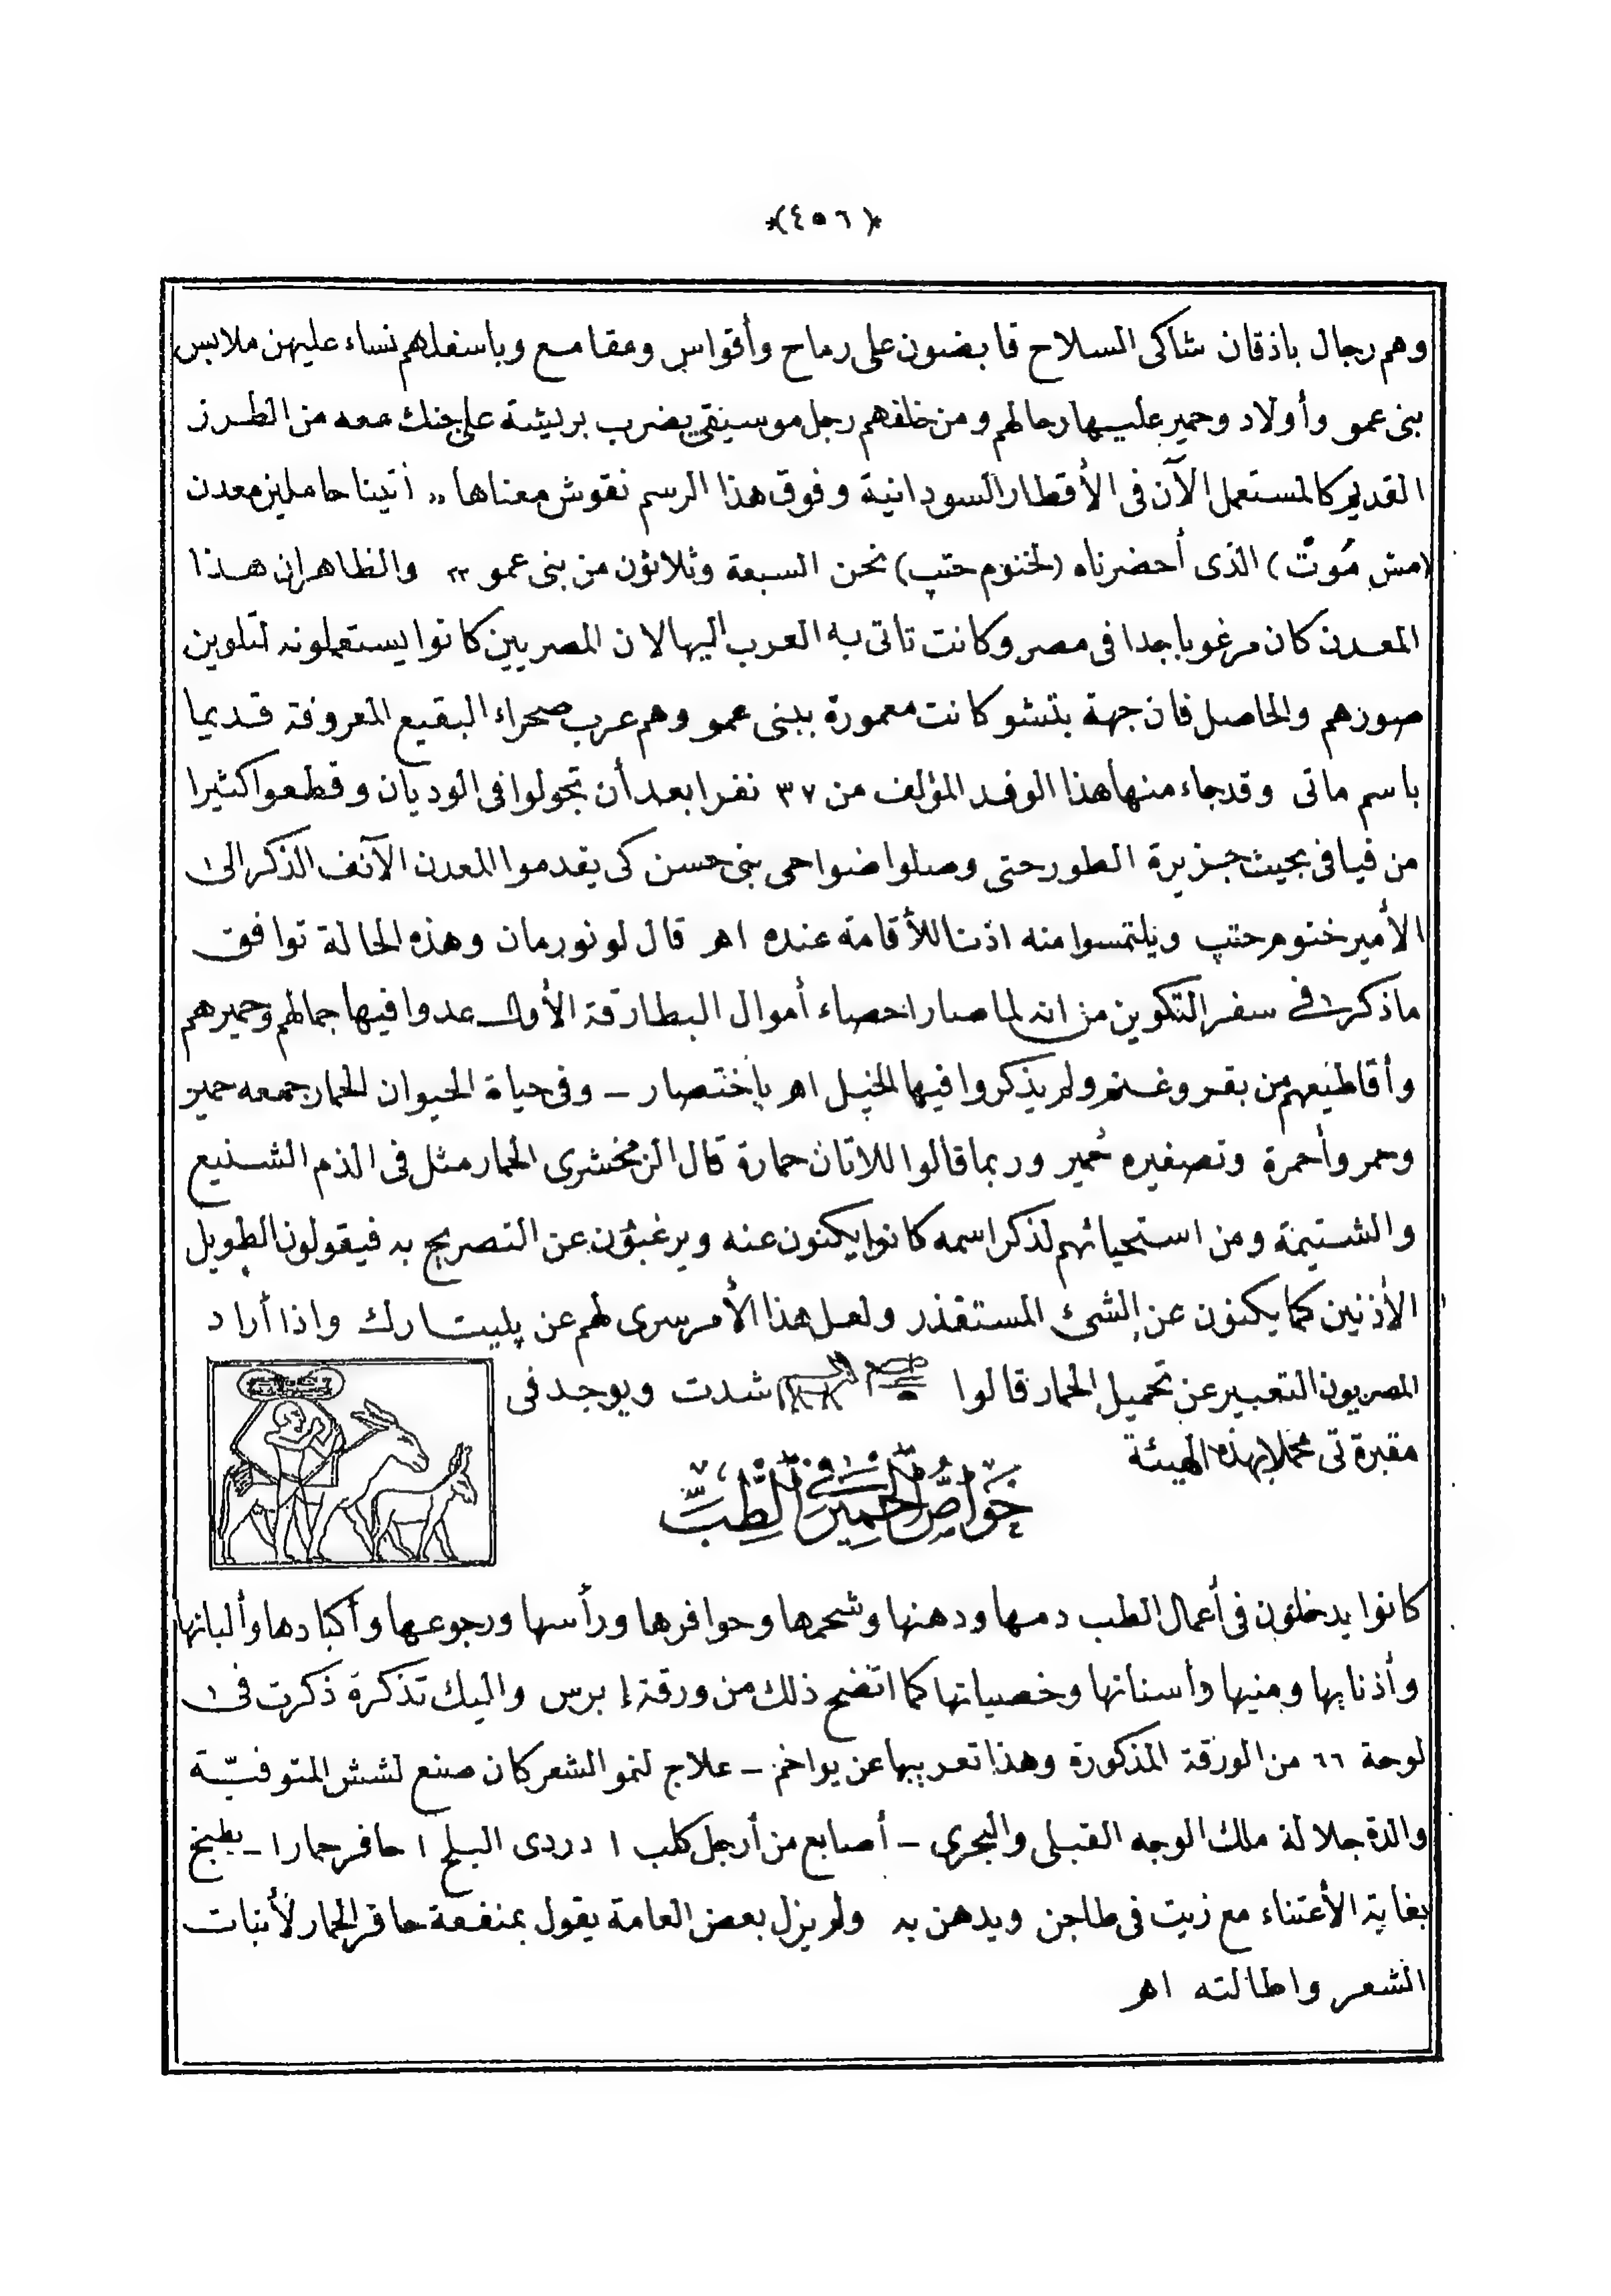 ﴿٤٥٦﴾
وهم رجال باذقان شاكى السلاح قابضون على رماح وأقواس ومقامع وباسفلهم نساء عليهن ملابس
بنى عمو وأولاد وحمير عليها رحالهم ومن خلفهم رجل موسيقى يضرب بريشة على جنك معه من الطرز
القديم كالمستعمل الآن فى الأقطار السودانية وفوق هذا الرسم نقوش معناها ,, أتينا حاملين معدن
(مش مُوتْ) الذى أحضرناه (لخنوم حتپ) نحن السبعة وثلاثون من بنى عمو ,, والظاهر ان هذا
المعدن كان مرغوبا جدا فى مصر وكانت تاتى به العرب اليها لان المصريين كانوا يستعملونه لتلوين
صورهم والحاصل فان جهة بتشو كانت معمورة ببنى عمو وهم عرب صحراء البقيع المعروفة قديما
باسم ماتى وقد جاء منها هذا الوفد المؤلف من ٣٧ نفرا بعد أن تجولوا فى الوديان وقطعوا كثيرا
من فيافى بحيث جزيرة الطور حتى وصلوا ضواحى بنى حسن كى يقدموا المعدن الآنف الذكر الى
الأمير خنوم حتپ ويلتمسوا منه اذنا للأقامة عنده اهر قال لونورمان وهذه الحالة توافق
ما ذكر فى سفر التكوين من انه لما صار احصاء أموال البطارقة الأول عدوا فيها جمالهم وحميرهم
وأقاطيعهم من بقر وغنم ولم يذكروا فيها الخيل اهر باختصار ـ وفى حياة الحيوان الحمار جمعه حمير
وحمر وأحمرة وتصغيره حُمير وربما قالوا للاتان حمارة قال الزمخشرى الحمار مثل فى الذم الشنيع
والشتيمة ومن استحيائهم لذكر اسمه كانوا يكنون عنه ويرغبون عن التصريح به فيقولون الطويل
الأذنين كما يكنون عن الشئ المستقذر ولعل هذا الأمر سرى لهم عن پليتارك واذا أراد
المصريون التعبير عن تحميل الحمار قالوا شدت ويوجد فى
مقبرة تى محملا بهذه الهيئة
خَوَاصُّ الحَمِيرِ فِى الطِّبِّ
كانوا يدخلون فى أعمال الطب دمها ودهنها وشحمها وحوافرها ورأسها ورجوعها وأكبادها وألبانها
وأذنابها ومنيها وأسنانها وخصياتها كما اتضح ذلك من ورقة إبرس واليك تذكرة ذكرت فى
لوحة ٦٦ من الورقة المذكورة وهذا تعريبها عن يواخم ـ علاج لنمو الشعر كان صنع لشش المتوفيّة
والدة جلالة ملك الوجه القبلى والبحرى ـ أصابع من أرجل كلب ١ دردى البلح ١ حافر حمار ١ ـ يطبخ
بغاية الأعتناء مع زيت فى طاجن ويدهن به ولم يزل بعض العامة يقول بمنفعة حافر الحمار لأنبات
الشعر واطالته اهر